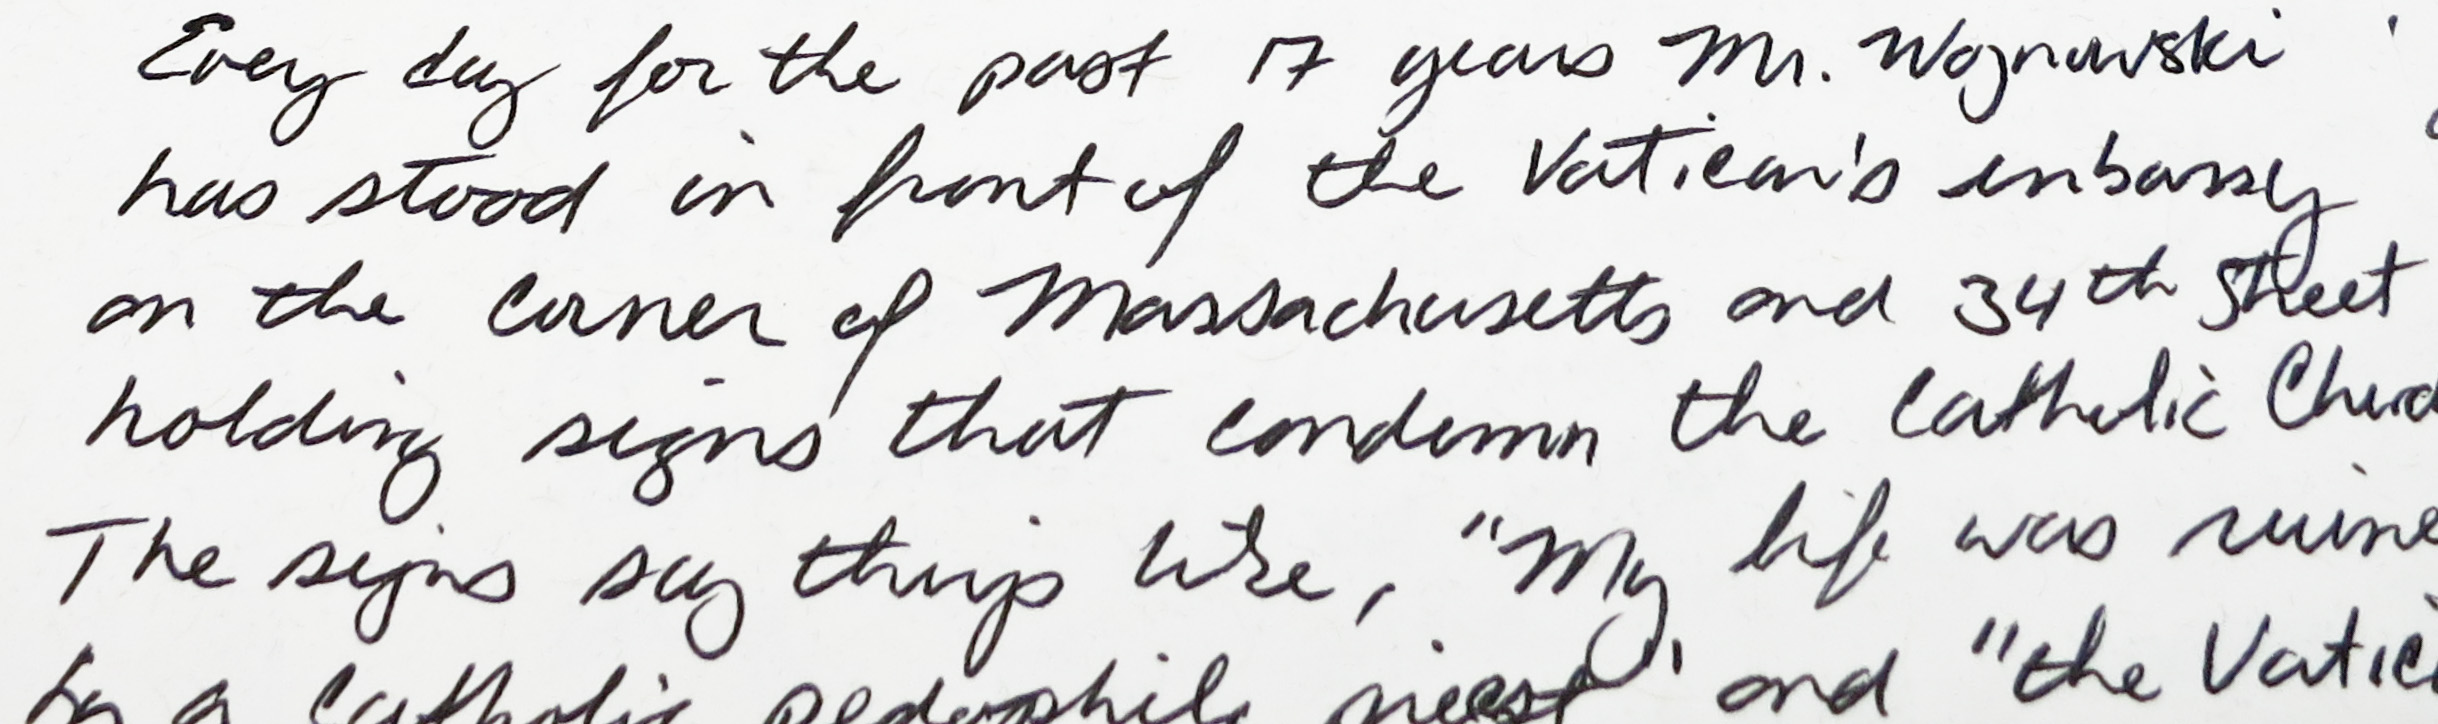 Every day for the past 17 years Mr. Wojnowski
has stood in front of the Vatican's embassy
on the corner of Massachusetts and 34th Street
holding signs that condemn the Catholic Churc
The signs say things like, "My life was ruine
by a Catholic pedophile priest" and "the Vatic